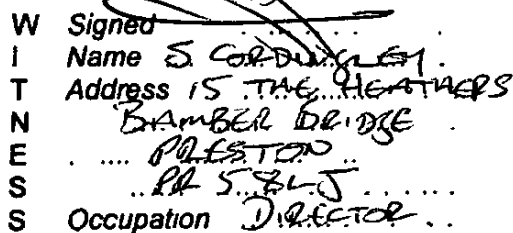 W Signed
I Name S CORDINGLEY
T Address 15 THE HEATHERS
N BAMBER BRIDGE
E PRESTON
S PR 5 8LJ
S Occupation DIRECTOR